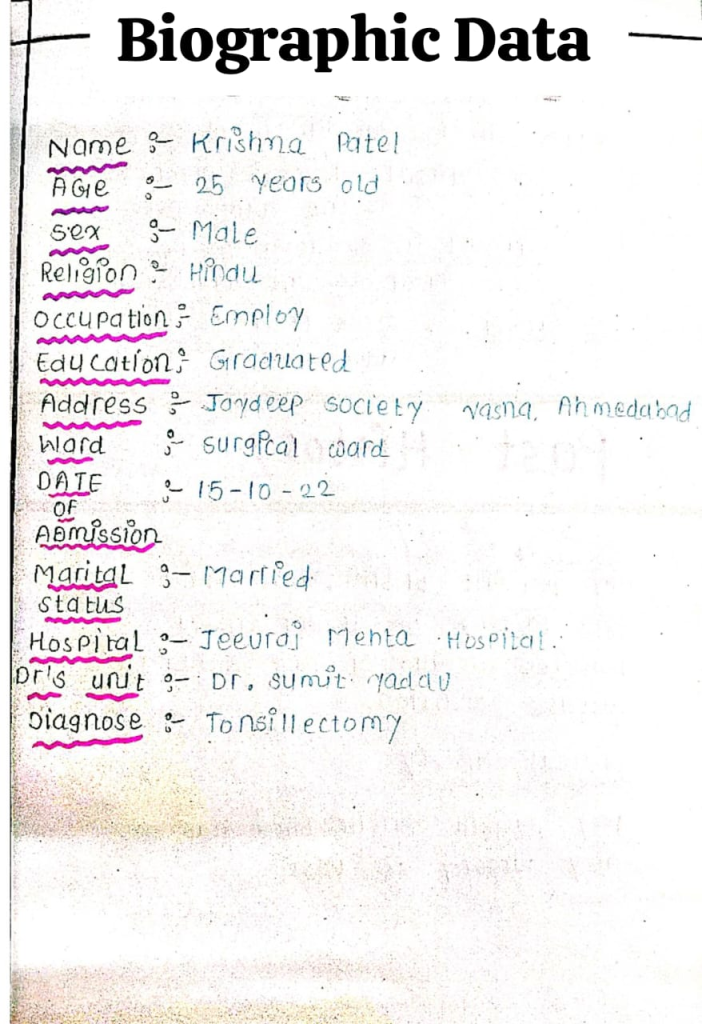 Biographic Data
Name :- Krishna Patel
AGe :- 25 years old
sex :- Male
Religion :- Hindu
Occupation :- Employ
Education :- Graduated
Address :- Jaydeep society vasna, Ahmedabad
Ward :- surgical ward
DATE :- 15-10-22
OF
ADmission
Marital :- Married
status
Hospital :- Jeevraj Mehta Hospital.
Dr's unit :- Dr. sumit yadav
Diagnose :- Tonsillectomy